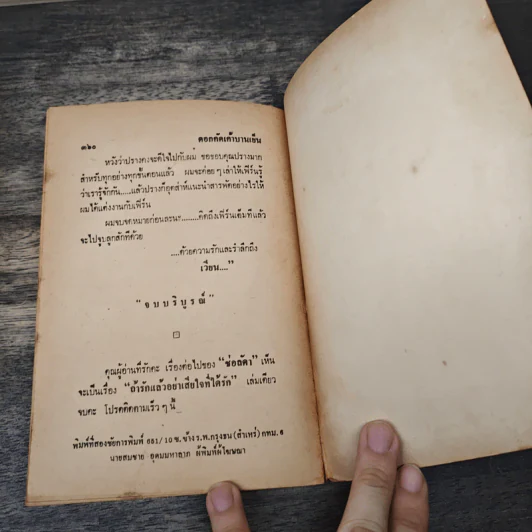 ๓๖๐
ดอกคัดเค้าบานเย็น
หวังว่าปรางคงจะดีใจไปกับผม ขอขอบคุณปรางมาก
สำหรับทุกอย่างทุกขั้นตอนแล้ว ผมจะค่อย ๆ เล่าให้เฟิร์นรู้
ว่าเรารู้จักกัน.....แล้วปรางก็อุตส่าห์แนะนำสารพัดอย่างไรให้
ผมได้แต่งงานกับเฟิร์น
ผมจบจดหมายก่อนละนะ........คิดถึงเฟิร์นเต็มทีแล้ว
จะไปจูบลูกสักทีด้วย
....ด้วยความรักและรำลึกถึง
เวียน...."
" จ บ บ ริ บู ร ณ์ "
คุณผู้อ่านที่รักคะ เรื่องต่อไปของ "ช่อลัดา" เห็น
จะเป็นเรื่อง "ถ้ารักแล้วอย่าเสียใจที่ได้รัก" เล่มเดียว
จบคะ โปรดติดตามเร็ว ๆ นี้
พิมพ์ที่สองชัยการพิมพ์ 681/10 ข. ข้าง ร.พ. กรุงธน (สำเหร่) กทม. ๑
นายสมชาย อุดมมหาลาภ ผู้พิมพ์ผู้โฆษณา